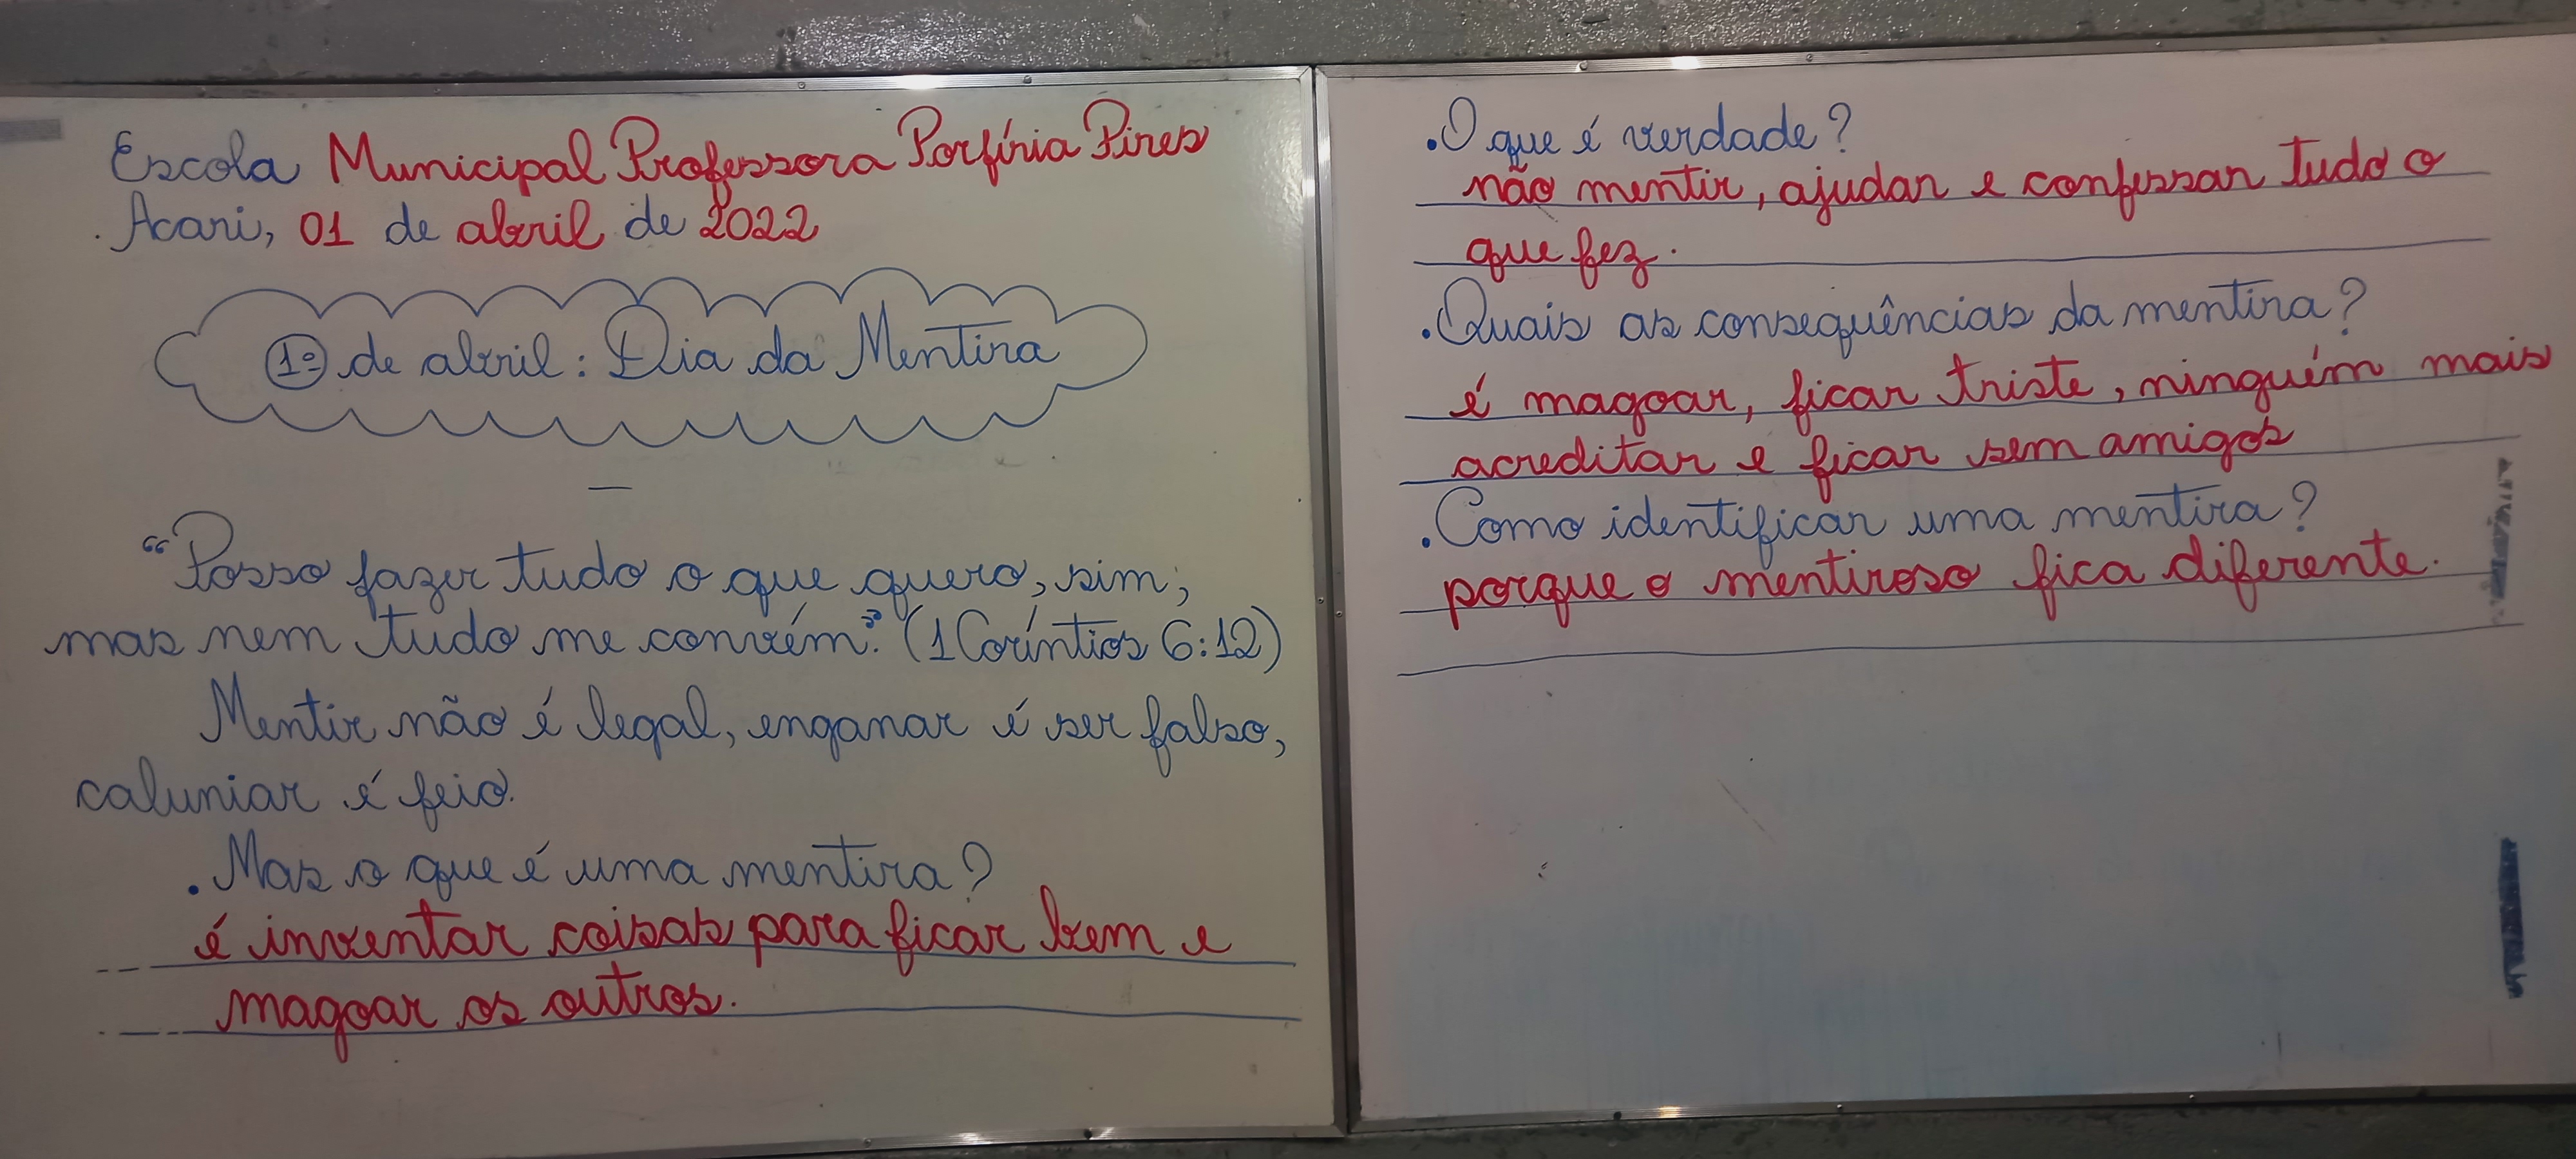 Escola Municipal Professora Porfíria Pires
Acari, 01 de abril de 2022
1º de abril: Dia da Mentira
“Posso fazer tudo o que quero, sim;
mas nem tudo me convém.” (1 Coríntios 6:12)
Mentir não é legal, enganar é ser falso,
caluniar é feio.
. Mas o que é uma mentira?
é inventar coisas para ficar bem e
magoar os outros.
. O que é verdade?
não mentir, ajudar e confessar tudo o
que fez.
. Quais as consequências da mentira?
é magoar, ficar triste, ninguém mais
acreditar e ficar sem amigos
. Como identificar uma mentira?
porque o mentiroso fica diferente.